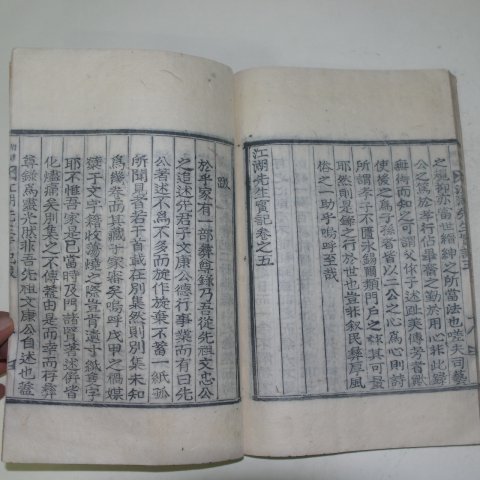 之規都亦當世縉紳之所當法也嗟夫司藝
公之爲於孝行佔畢齋之勤於用心非此錄
無傳而知之可謂父作子述趾美傳考者歟
使後之爲子孫者皆以二公之心爲心則詩
所謂孝子不匱永錫爾類門戶之好其可量
耶然則是錄之行於世也豈非敍民彝厚風
俗之一助乎嗚呼至哉
江湖先生實記卷之五
跋
於乎家有一部彝尊錄乃吾從先祖文忠公
之追述先君子文康公德行事業而有曰先
公著述不爲不多而旋作旋棄不蓄一紙孤
所聞見者若于首載在別集然則別集未知
爲幾卷而其藏于家審矣嗚呼戊甲之禍媒
孽于文字籍收蕩燒之際豈肯遺寸紙隻字
耶不惟吾家是已當時及門諸賢著述倂皆
化燼痛矣別集之不傳舊由是而一何存彝
尊錄爲靈光然非吾先祖文康公自述也蓋